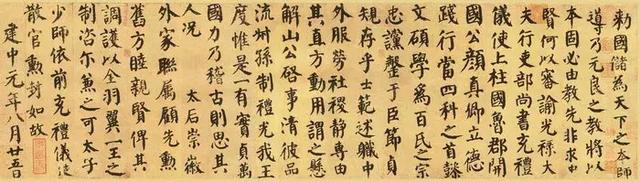 勑國儲為天下之本師
導乃元良之教將以
本固必由教先非求中
賢何以審諭光祿大
夫行吏部尚書充禮
儀使上柱國魯郡開
國公顏真卿立德
踐行當四科之首懿
文碩學為百氏之宗
忠讜罄于臣節貞
規存乎士範述職中
外服勞社稷靜專由
其直方動用謂之懸
解山公啓事清彼品
流州孫制禮光我王
度惟是一有實貞萬
國力乃稽古則思其
人況 太后崇徽
外家聯屬顧先勳
舊方睦親賢俾其
調護以全羽翼一王之
制咨尔兼之可太子
少師依前充禮儀使
散官勳封如故
建中元年八月廿五日